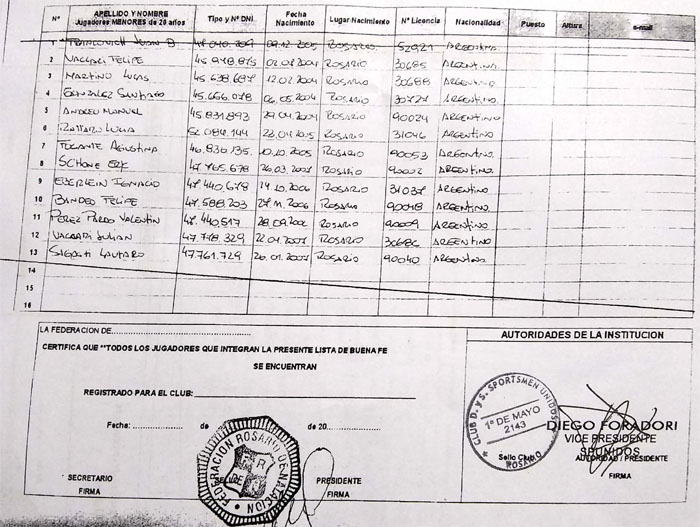 Nº APELLIDO Y NOMBRE Jugadores MENORES de 20 años Tipo y Nº DNI Fecha Nacimiento Lugar Nacimiento Nº Licencia Nacionalidad Puesto Altura e-mail
1 Juan B 2005 ROSARIO 52921 ARGENTINO
2 VACCARI FELIPE 45.978.875 2004 ROSARIO 30685 ARGENTINO
3 MARTINO LUCAS 45.638.687 12.02.2004 ROSARIO 30688 ARGENTINO
4 GONZALEZ SANTIAGO 45.656.078 06.05.2004 ROSARIO 30727 ARGENTINO
5 ANDREU MANUEL 45.831.893 29.04.2004 ROSARIO 90024 ARGENTINO
6 LUCIA 22.04.2005 ROSARIO 31046 ARGENTINO
7 AGUSTINA 46.830.735 10.10.2005 ROSARIO 90053 ARGENTINO
8 SCHONE ERIK 47.765.678 26.03. ROSARIO 90002 ARGENTINO
9 EBERLEIN IGNACIO 47.440.678 14.10.2006 ROSARIO 31037 ARGENTINO
10 BANDEO FELIPE 47.588.203 27.11.2006 ROSARIO 90048 ARGENTINO
11 PEREZ PARDO VALENTIN 47.440.517 28.09.2006 ROSARIO 90009 ARGENTINO
12 VACCARI JULIAN 47.778.329 22.01.2007 ROSARIO 30686 ARGENTINO
13 LAUTARO 47.761.729 26.01.2007 ROSARIO 90040 ARGENTINO
14
15
16
LA FEDERACION DE
CERTIFICA QUE **TODOS LOS JUGADORES QUE INTEGRAN LA PRESENTE LISTA DE BUENA FE
SE ENCUENTRAN
REGISTRADO PARA EL CLUB:
Fecha: de de 20
SECRETARIO
FIRMA
FEDERACION ROSARINA DE NATACION
PRESIDENTE
FIRMA
AUTORIDADES DE LA INSTITUCION
CLUB D. y S. SPORTSMEN UNIDOS
1º DE MAYO
2143
ROSARIO
Sello Club
DIEGO FORADORI
VICE PRESIDENTE
SPUNIDOS
AUTORIDAD / PRESIDENTE
FIRMA